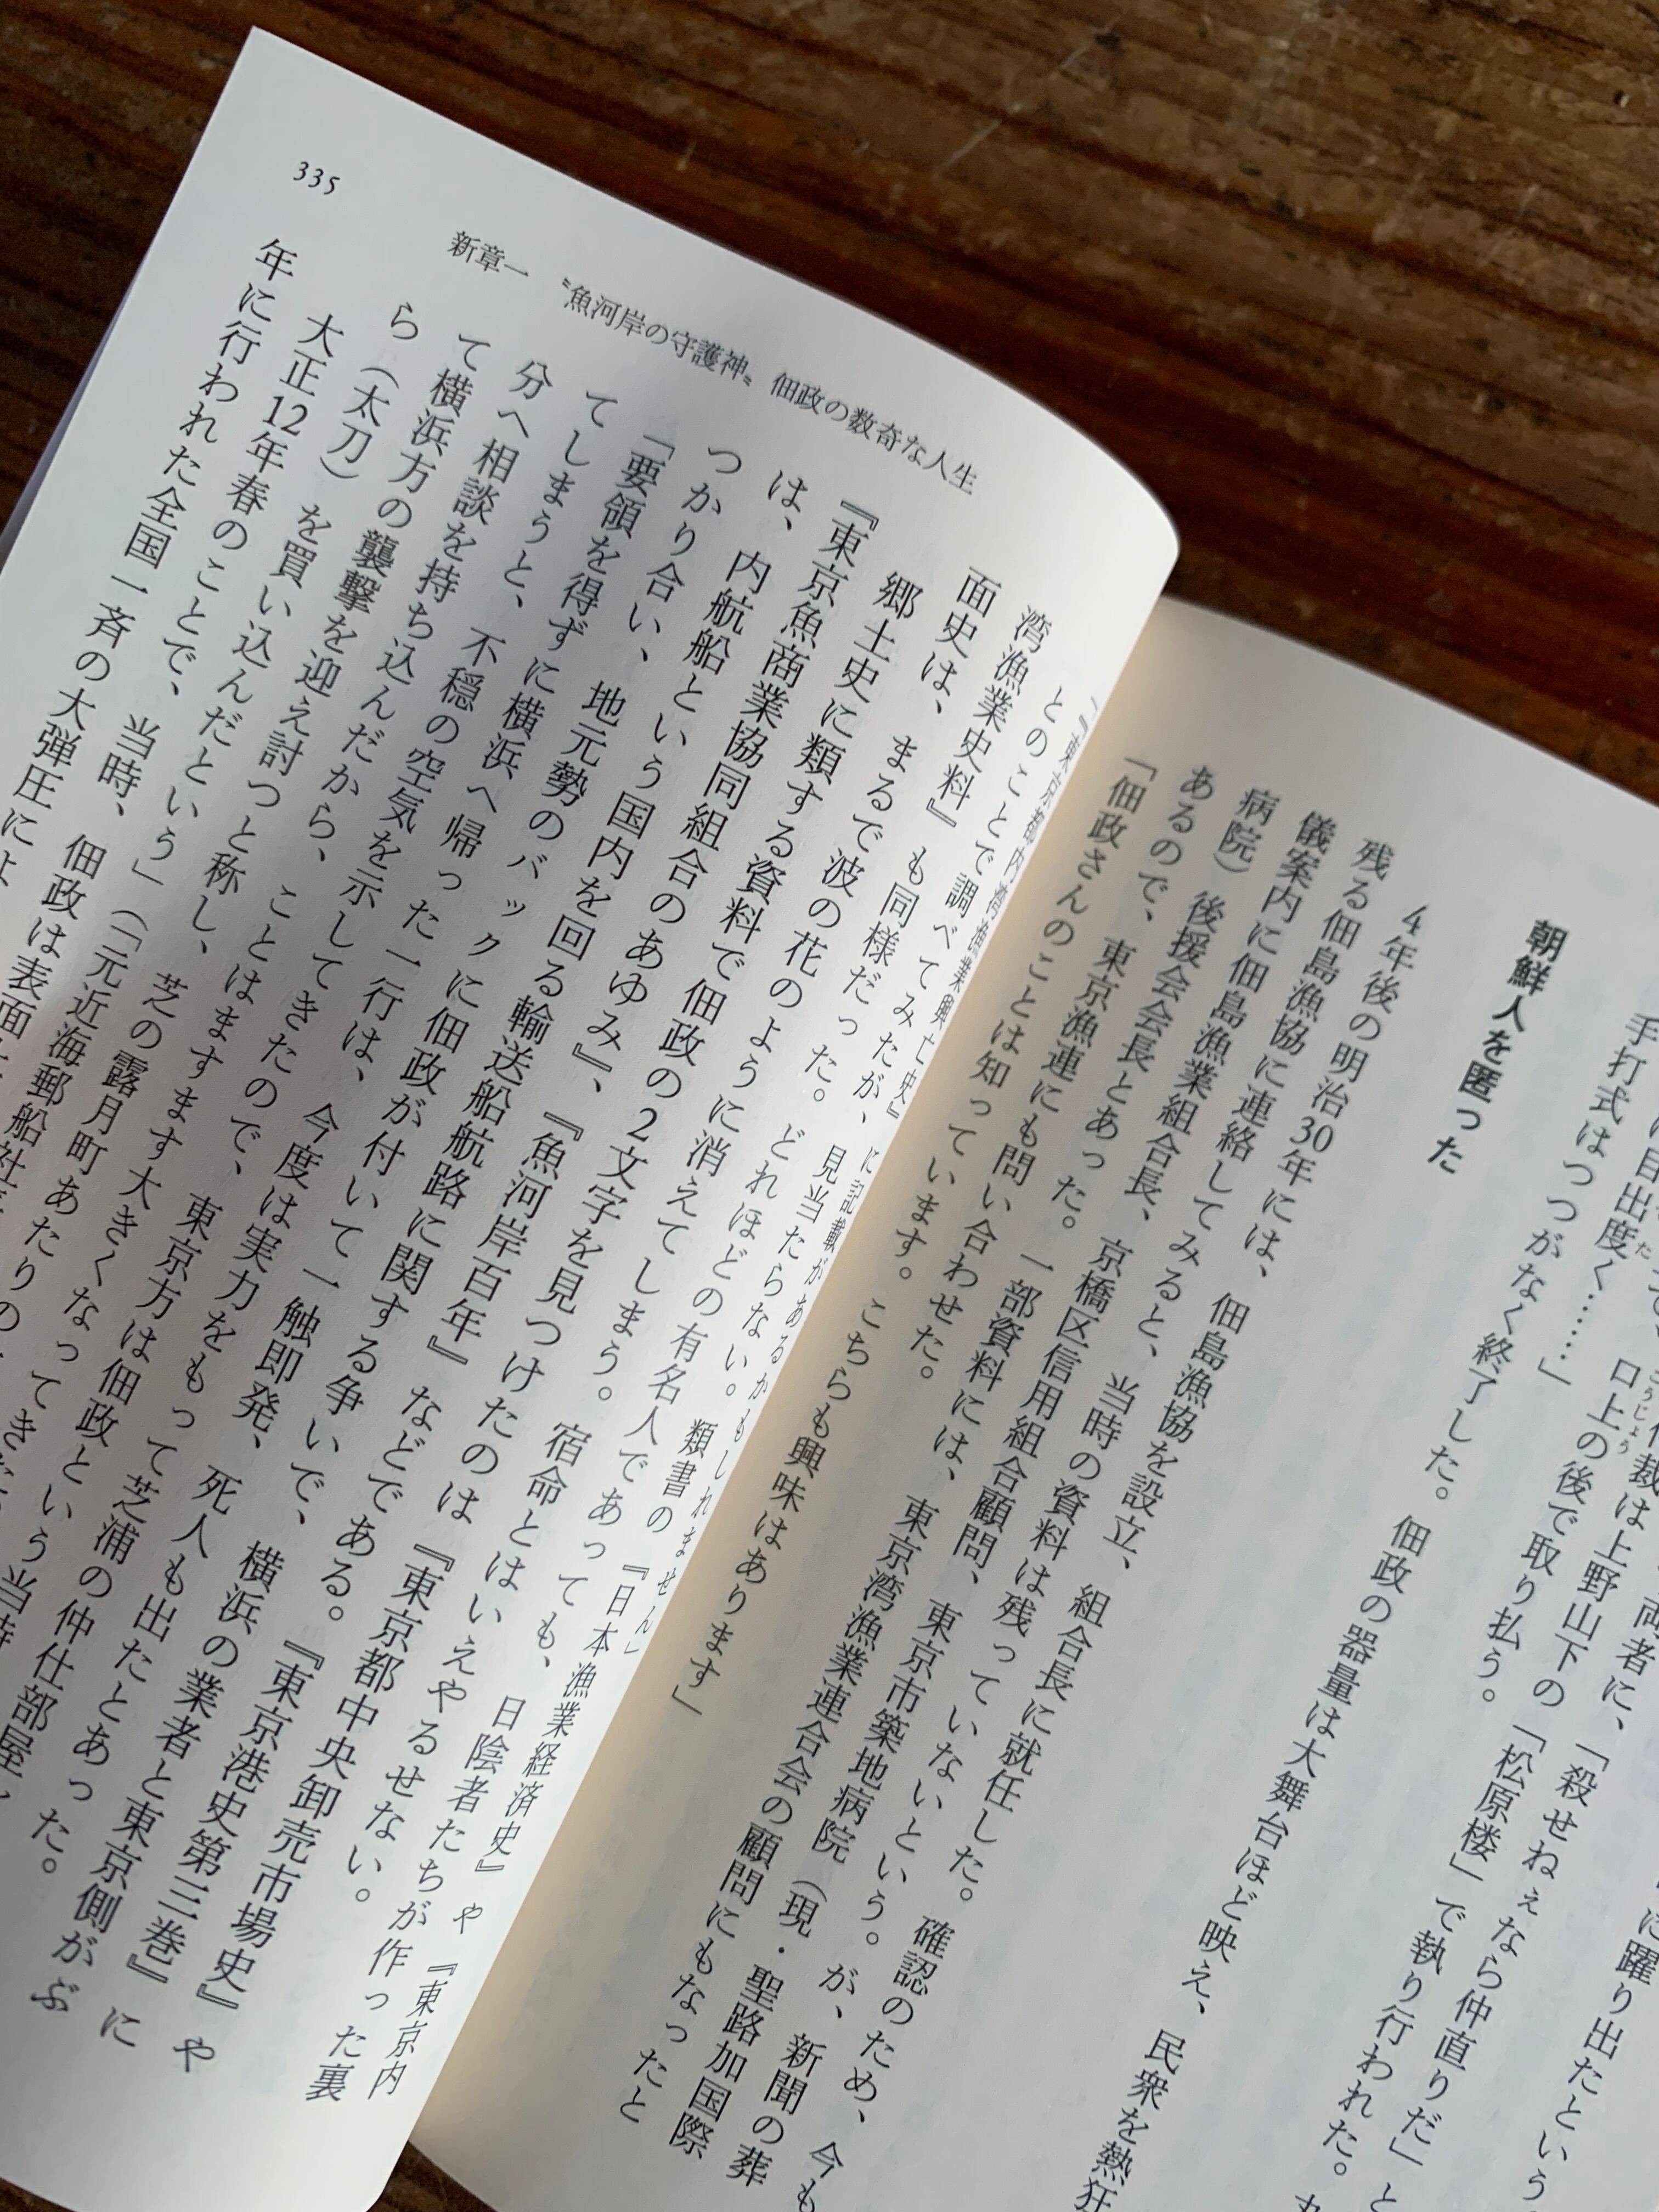 に躍り出たという
手打式はつつがなく終了した。佃政の器量は大舞台ほど映え、民衆を熱狂
朝鮮人を匿った
4年後の明治30年には、佃島漁協を設立、組合長に就任した。確認のため、今も
残る佃島漁協に連絡してみると、当時の資料は残っていないという。が、新聞の葬
儀案内に佃島漁業組合長、京橋区信用組合顧問、東京市築地病院（現・聖路加国際
病院）後援会会長とあった。一部資料には、東京湾漁業連合会の顧問にもなったと
あるので、東京漁連にも問い合わせた。
「佃政さんのことは知っています。こちらも興味はあります」
『東京都内湾漁業興亡史』に記載があるかもしれません」
とのことで調べてみたが、見当たらない。類書の『日本漁業経済史』や『東京内
湾漁業史料』も同様だった。どれほどの有名人であっても、日陰者たちが作った裏
面史は、まるで波の花のように消えてしまう。宿命とはいえやるせない。
郷土史に類する資料で佃政の2文字を見つけたのは『東京都中央卸売市場史』や
『東京魚商業協同組合のあゆみ』、『魚河岸百年』などである。『東京港史第三巻』に
は、内航船という国内を回る輸送船航路に関する争いで、横浜の業者と東京側がぶ
つかり合い、地元勢のバックに佃政が付いて一触即発、死人も出たとあった。
「要領を得ずに横浜へ帰った一行は、今度は実力をもって芝浦の仲仕部屋
てしまうと、不穏の空気を示してきたので、東京方は佃政という当時
分へ相談を持ち込んだから、ことはますます大きくなってき
て横浜方の襲撃を迎え討つと称し、芝の露月町あたりの
ら（太刀）を買い込んだという」（「元近海郵船社
大正12年春のことで、当時、佃政は表面
年に行われた全国一斉の大弾圧によ
新章一 〝魚河岸の守護神〟佃政の数奇な人生
335